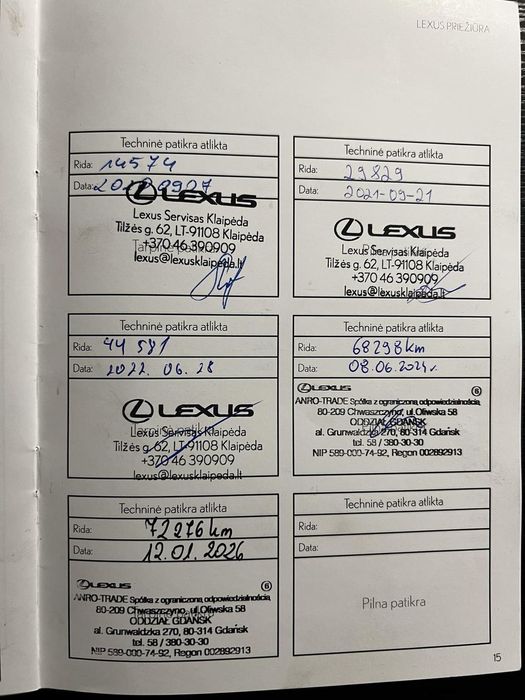 LEXUS PRIEŽIŪRA
Techninė patikra atlikta
Rida: 14574
Data:
LEXUS
Lexus Servisas Klaipėda
Tilžės g. 62, LT-91108 Klaipėda
+370 46 390909
lexus@lexusklaipeda.lt
Techninė patikra atlikta
Rida: 29829
Data: 2021-09-21
LEXUS
Lexus Servisas Klaipėda
Tilžės g. 62, LT-91108 Klaipėda
+370 46 390909
lexus@lexusklaipeda.lt
Techninė patikra atlikta
Rida: 44 581
Data: 2022. 06. 28
LEXUS
Lexus Servisas Klaipėda
Tilžės g. 62, LT-91108 Klaipėda
+370 46 390909
lexus@lexusklaipeda.lt
Techninė patikra atlikta
Rida: 68298km
Data: 08.06.2024r.
LEXUS 6
ANRO-TRADE Spółka z ograniczoną odpowiedzialnością
80-209 Chwaszczyno, ul.Oliwska 58
ODDZIAŁ GDAŃSK
al. Grunwaldzka 270, 80-314 Gdańsk
tel. 58 / 380-30-30
NIP 589-000-74-92, Regon 002892913
Techninė patikra atlikta
Rida: 72976km
Data: 12.01.2026
LEXUS 6
ANRO-TRADE Spółka z ograniczoną odpowiedzialnością
80-209 Chwaszczyno, ul.Oliwska 58
ODDZIAŁ GDAŃSK
al. Grunwaldzka 270, 80-314 Gdańsk
tel. 58 / 380-30-30
NIP 589-000-74-92, Regon 002892913
Techninė patikra atlikta
Rida:
Data:
Pilna patikra
15